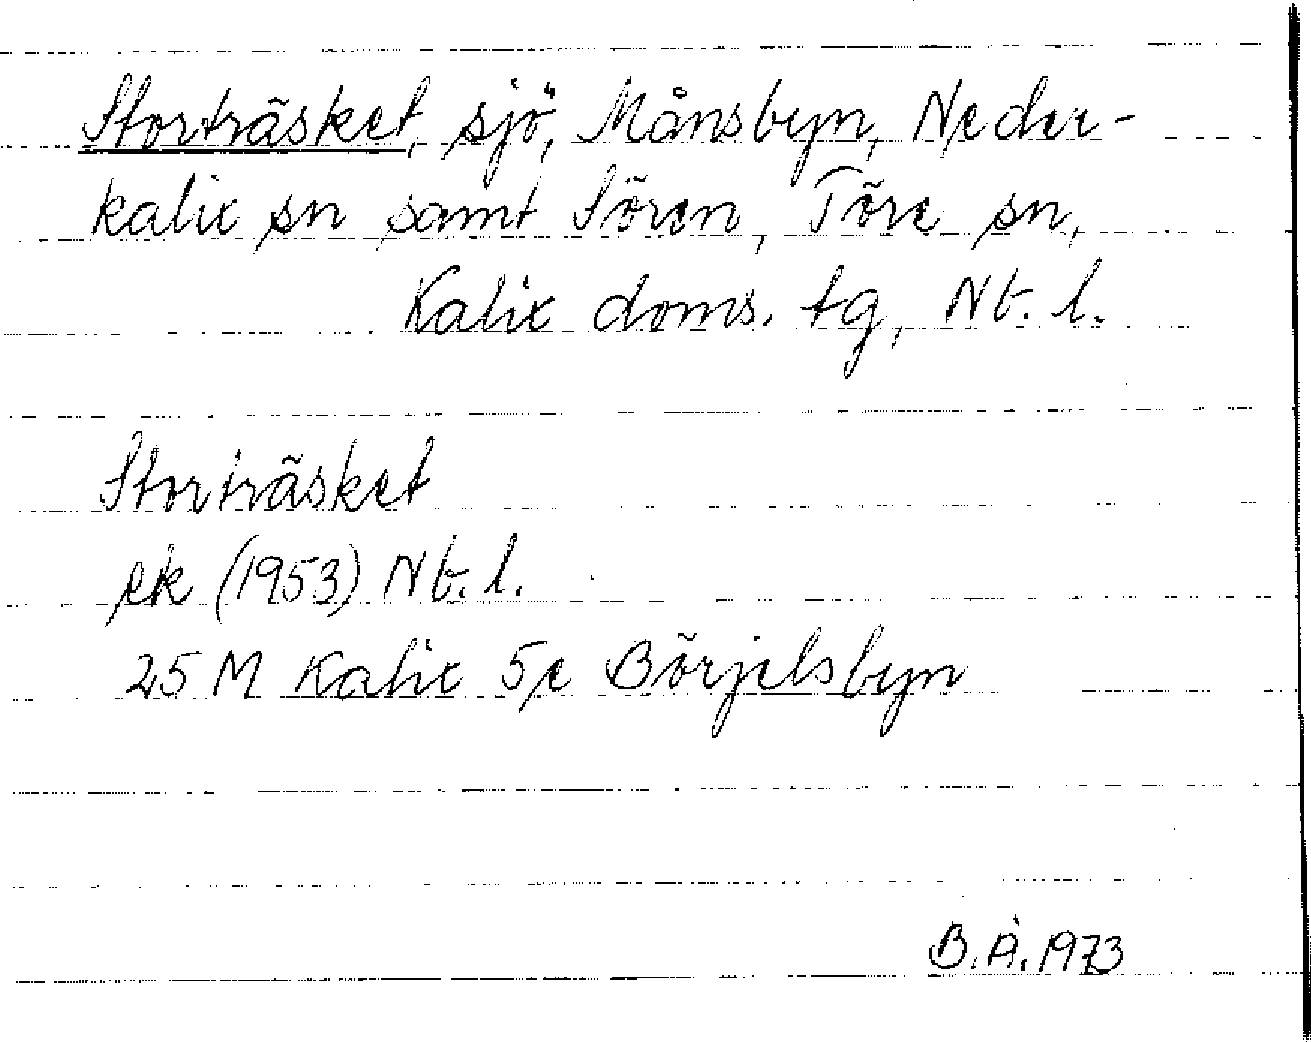 Storträsket, sjö, Månsbyn, Neder-
kalix sn samt Sören, Töre sn,
Kalix doms. tg, Nb. l.
Storträsket
ek (1953) Nb. l.
25 M Kalix 5e Börjelsbyn
B.Å. 1973